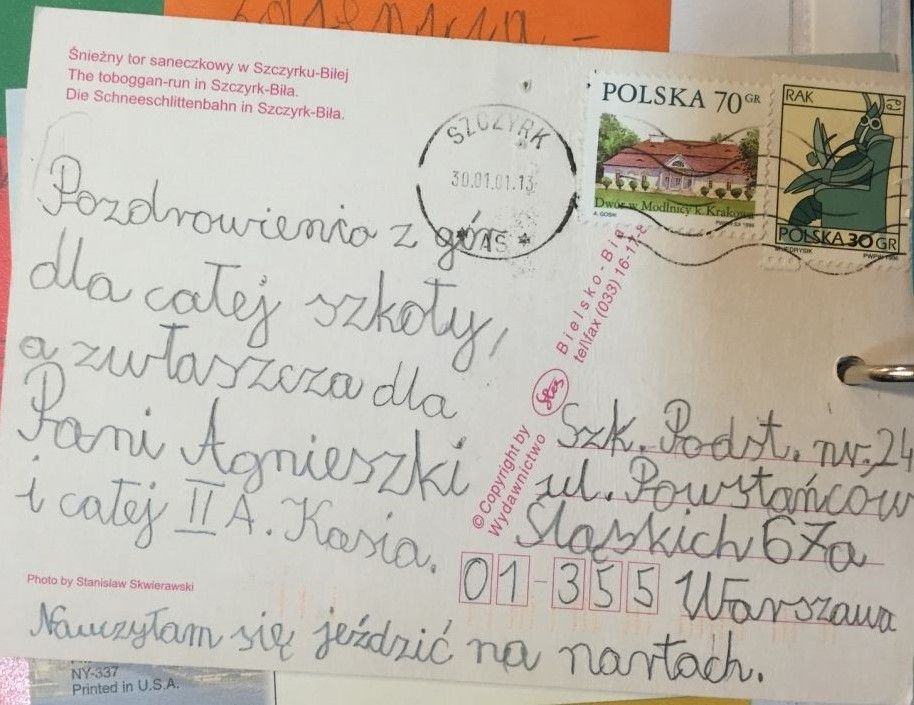 Śnieżny tor saneczkowy w Szczyrku-Biłej
The toboggan-run in Szczyrk-Biła.
Die Schneeschlittenbahn in Szczyrk-Biła.
SZCZYRK
30.01.01.13
POLSKA 70 GR
Dwór w Modlnicy k. Krakowa
RAK
POLSKA 30 GR
Pozdrowienia z gór
dla całej szkoły,
a zwłaszcza dla
Pani Agnieszki
i całej II A. Kasia.
Photo by Stanisław Skwierawski
Nauczyłam się jeździć na nartach.
© Copyright by
Wydawnictwo
Bielsko-Bia
tel\fax (033) 16-17-8
Szk. Podst. nr. 24
ul. Powstańców
Śląskich 67a
01-355 Warszawa
NY-337
Printed in U.S.A.